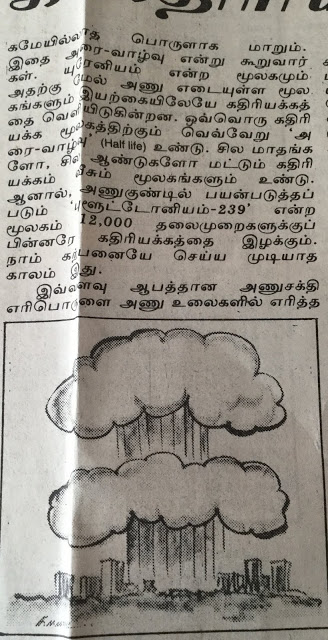 கமேயில்லாத பொருளாக மாறும்.
இதை அரை-வாழ்வு என்று கூறுவார்
கள். யுரேனியம் என்ற மூலகமும்
அதற்கு மேல் அணு எடையுள்ள மூல
கங்களும் இயற்கையிலேயே கதிரியக்கத்
தை வெளியிடுகின்றன. ஒவ்வொரு கதிரி
யக்க மூலகத்திற்கும் வெவ்வேறு 'அ
ரை-வாழ்வு' (Half life) உண்டு. சில மாதங்க
ளோ, சில ஆண்டுகளோ மட்டும் கதிரி
யக்கம் வீசும் மூலகங்களும் உண்டு.
ஆனால், அணுகுண்டில் பயன்படுத்தப்
படும் 'புளூட்டோனியம்-239' என்ற
மூலகம் 12,000 தலைமுறைகளுக்குப்
பின்னரே கதிரியக்கத்தை இழக்கும்.
நாம் கற்பனையே செய்ய முடியாத
காலம் இது.
இவ்வளவு ஆபத்தான அணுசக்தி
எரிபொருளை அணு உலைகளில் எரித்த